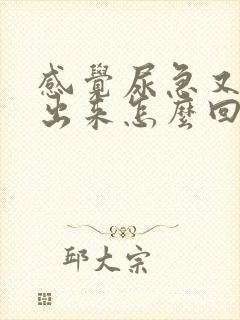 感覺尿急又
出來怎麼回
邱大宗